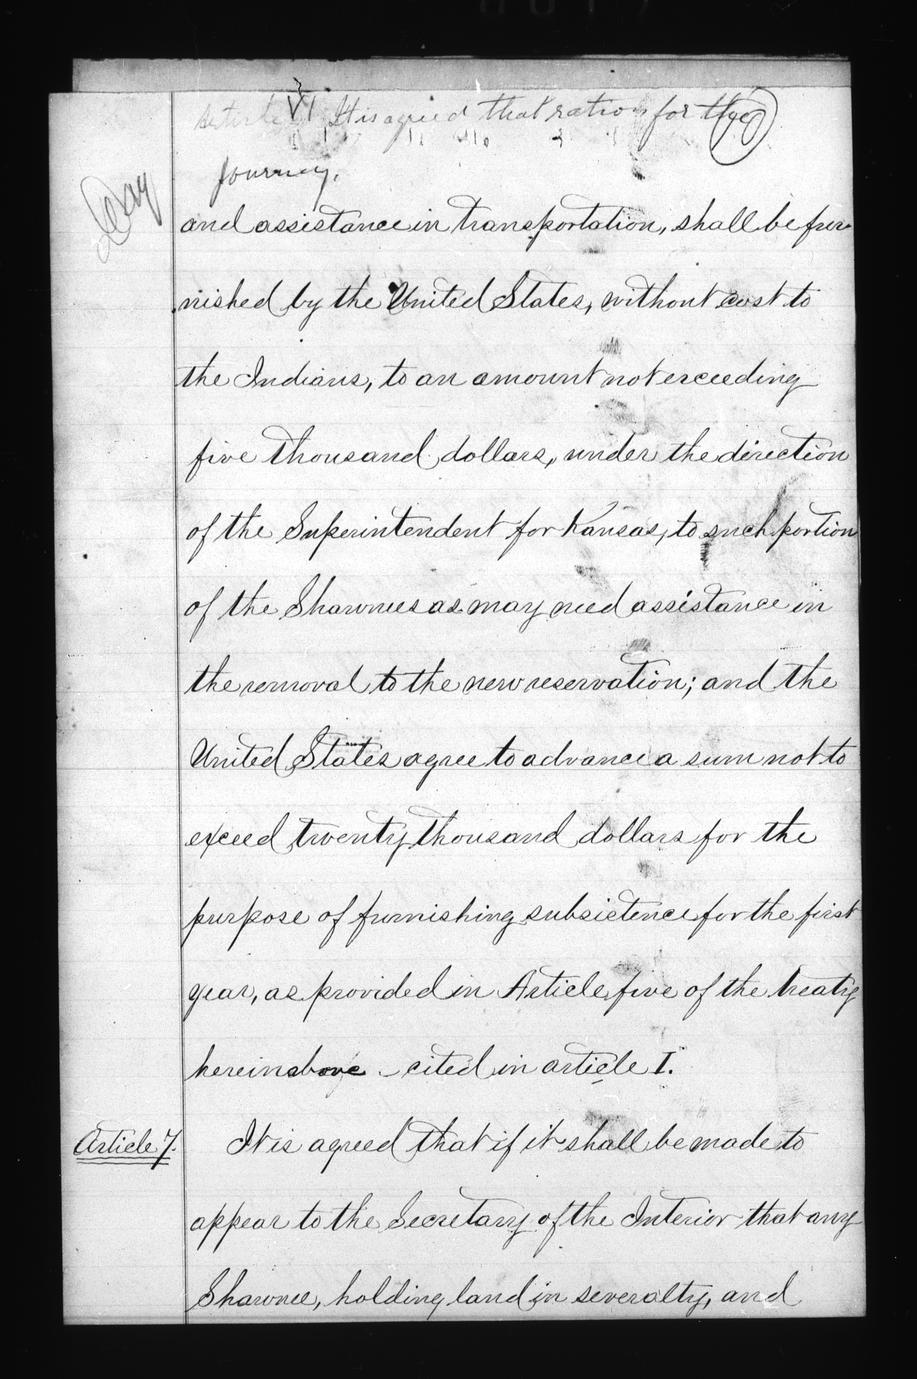 Article VI It is agreed that rations for the
10
journey,
and assistance in transportation, shall be fur
nished by the United States, without cost to
the Indians, to an amount not exceeding
five thousand dollars, under the direction
of the Superintendent for Kansas, to such portion
of the Shawnees as may need assistance in
the removal to the new reservation; and the
United States agree to advance a sum not to
exceed twenty thousand dollars for the
purpose of furnishing subsistence for the first
year, as provided in Article five of the treaty
hereinabove cited in article I.
Article 7. It is agreed that if it shall be made to
appear to the Secretary of the Interior that any
Shawnee, holding land in severalty, and